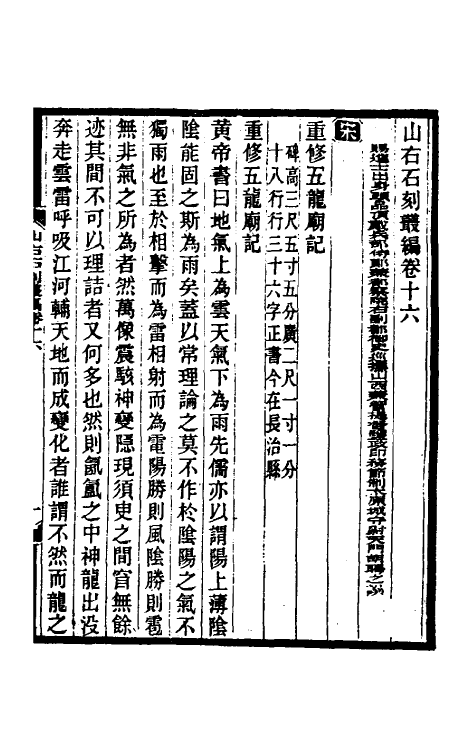 山右石刻叢編卷十六
賜進士出身頭品頂戴兵部侍郎兼都察院右副都御史巡撫山西兼管提督鹽政印務節制太原城守尉天門胡聘之譔
宋
重修五龍廟記
碑高三尺五寸五分廣二尺一寸一分
十八行行三十六字正書今在長治縣
重修五龍廟記
黃帝書曰地氣上為雲天氣下為雨先儒亦以謂陽上薄陰
陰能固之斯為雨矣蓋以常理論之莫不作於陰陽之氣不
獨雨也至於相擊而為雷相射而為電陽勝則風陰勝則雹
無非氣之所為者然萬像震駭神變隱現須史之間窅無餘
迹其間不可以理詰者又何多也然則氤氳之中神龍出没
奔走雲雷呼吸江河輔天地而成變化者誰謂不然而龍之
山右石刻叢編卷十六
一